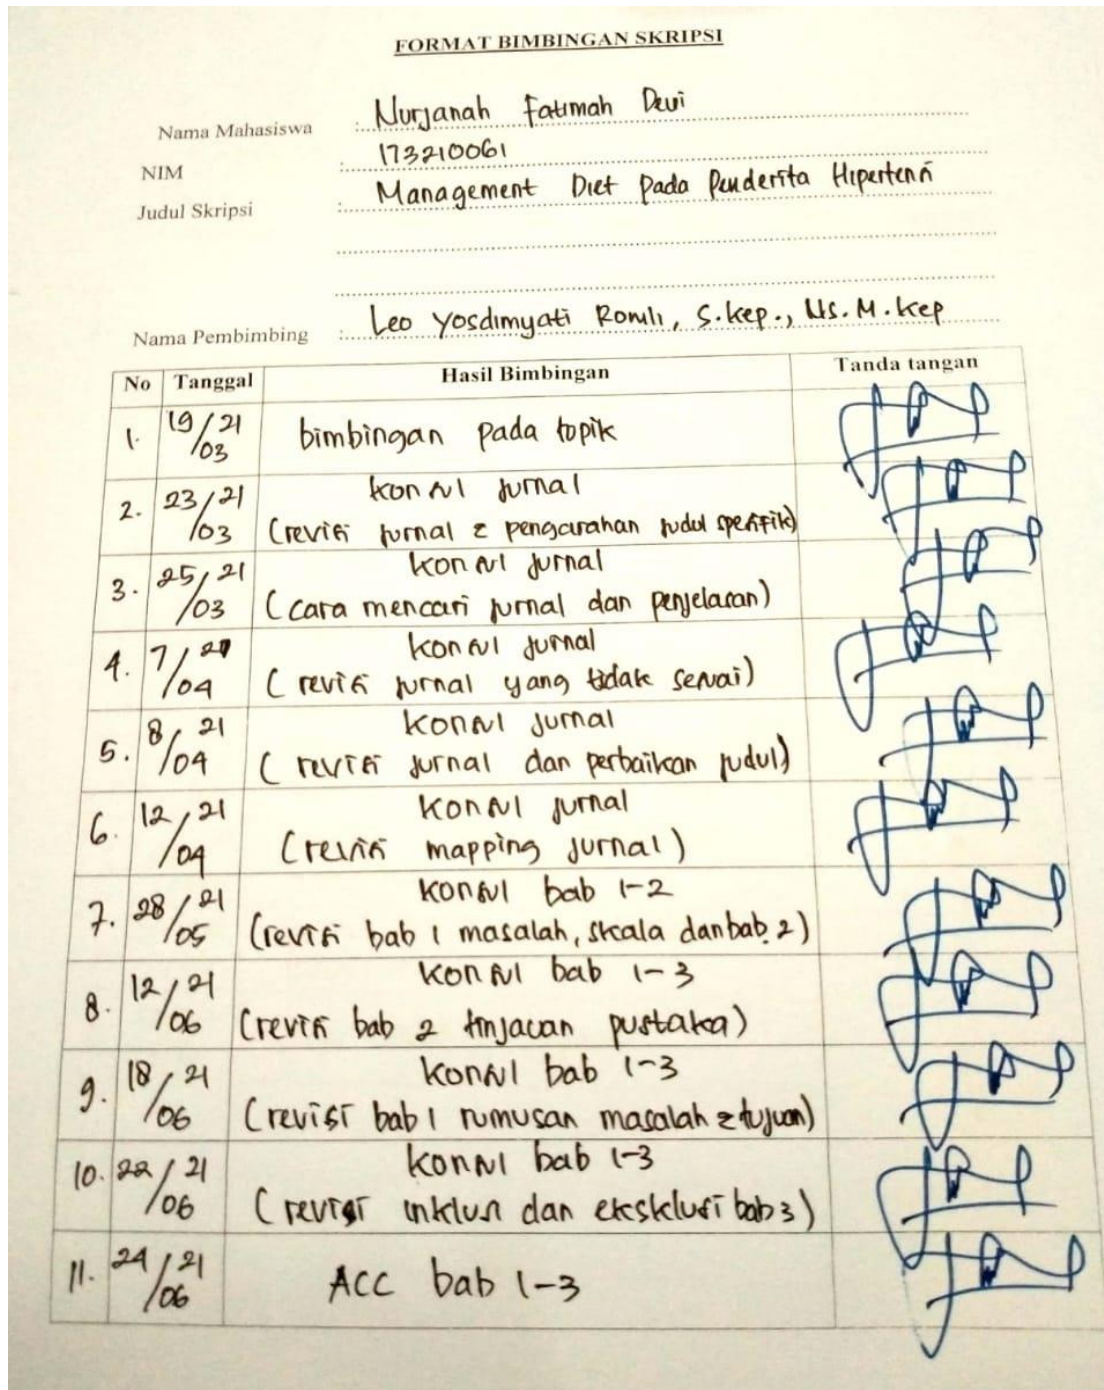 FORMAT BIMBINGAN SKRIPSI
Nama Mahasiswa : Nurjanah Fatimah Dewi
NIM : 173210061
Judul Skripsi : Management Diet pada Penderita Hipertensi
Nama Pembimbing : Leo Yosdimyati Romli, S.kep., Ns. M.kep
No Tanggal Hasil Bimbingan Tanda tangan
1. 19/03 21 bimbingan pada topik
2. 23/03 21 konsul jurnal
(revisi jurnal & pengarahan judul spesifik)
3. 25/03 21 konsul jurnal
(cara mencari jurnal dan penjelasan)
4. 7/04 21 konsul jurnal
(revisi jurnal yang tidak sesuai)
5. 8/04 21 konsul jurnal
(revisi jurnal dan perbaikan judul)
6. 12/04 21 konsul jurnal
(revisi mapping jurnal)
7. 28/05 21 konsul bab 1-2
(revisi bab 1 masalah, skala dan bab 2)
8. 12/06 21 konsul bab 1-3
(revisi bab 2 tinjauan pustaka)
9. 18/06 21 konsul bab 1-3
(revisi bab 1 rumusan masalah & tujuan)
10. 22/06 21 konsul bab 1-3
(revisi inklusi dan eksklusi bab 3)
11. 24/06 21 ACC bab 1-3